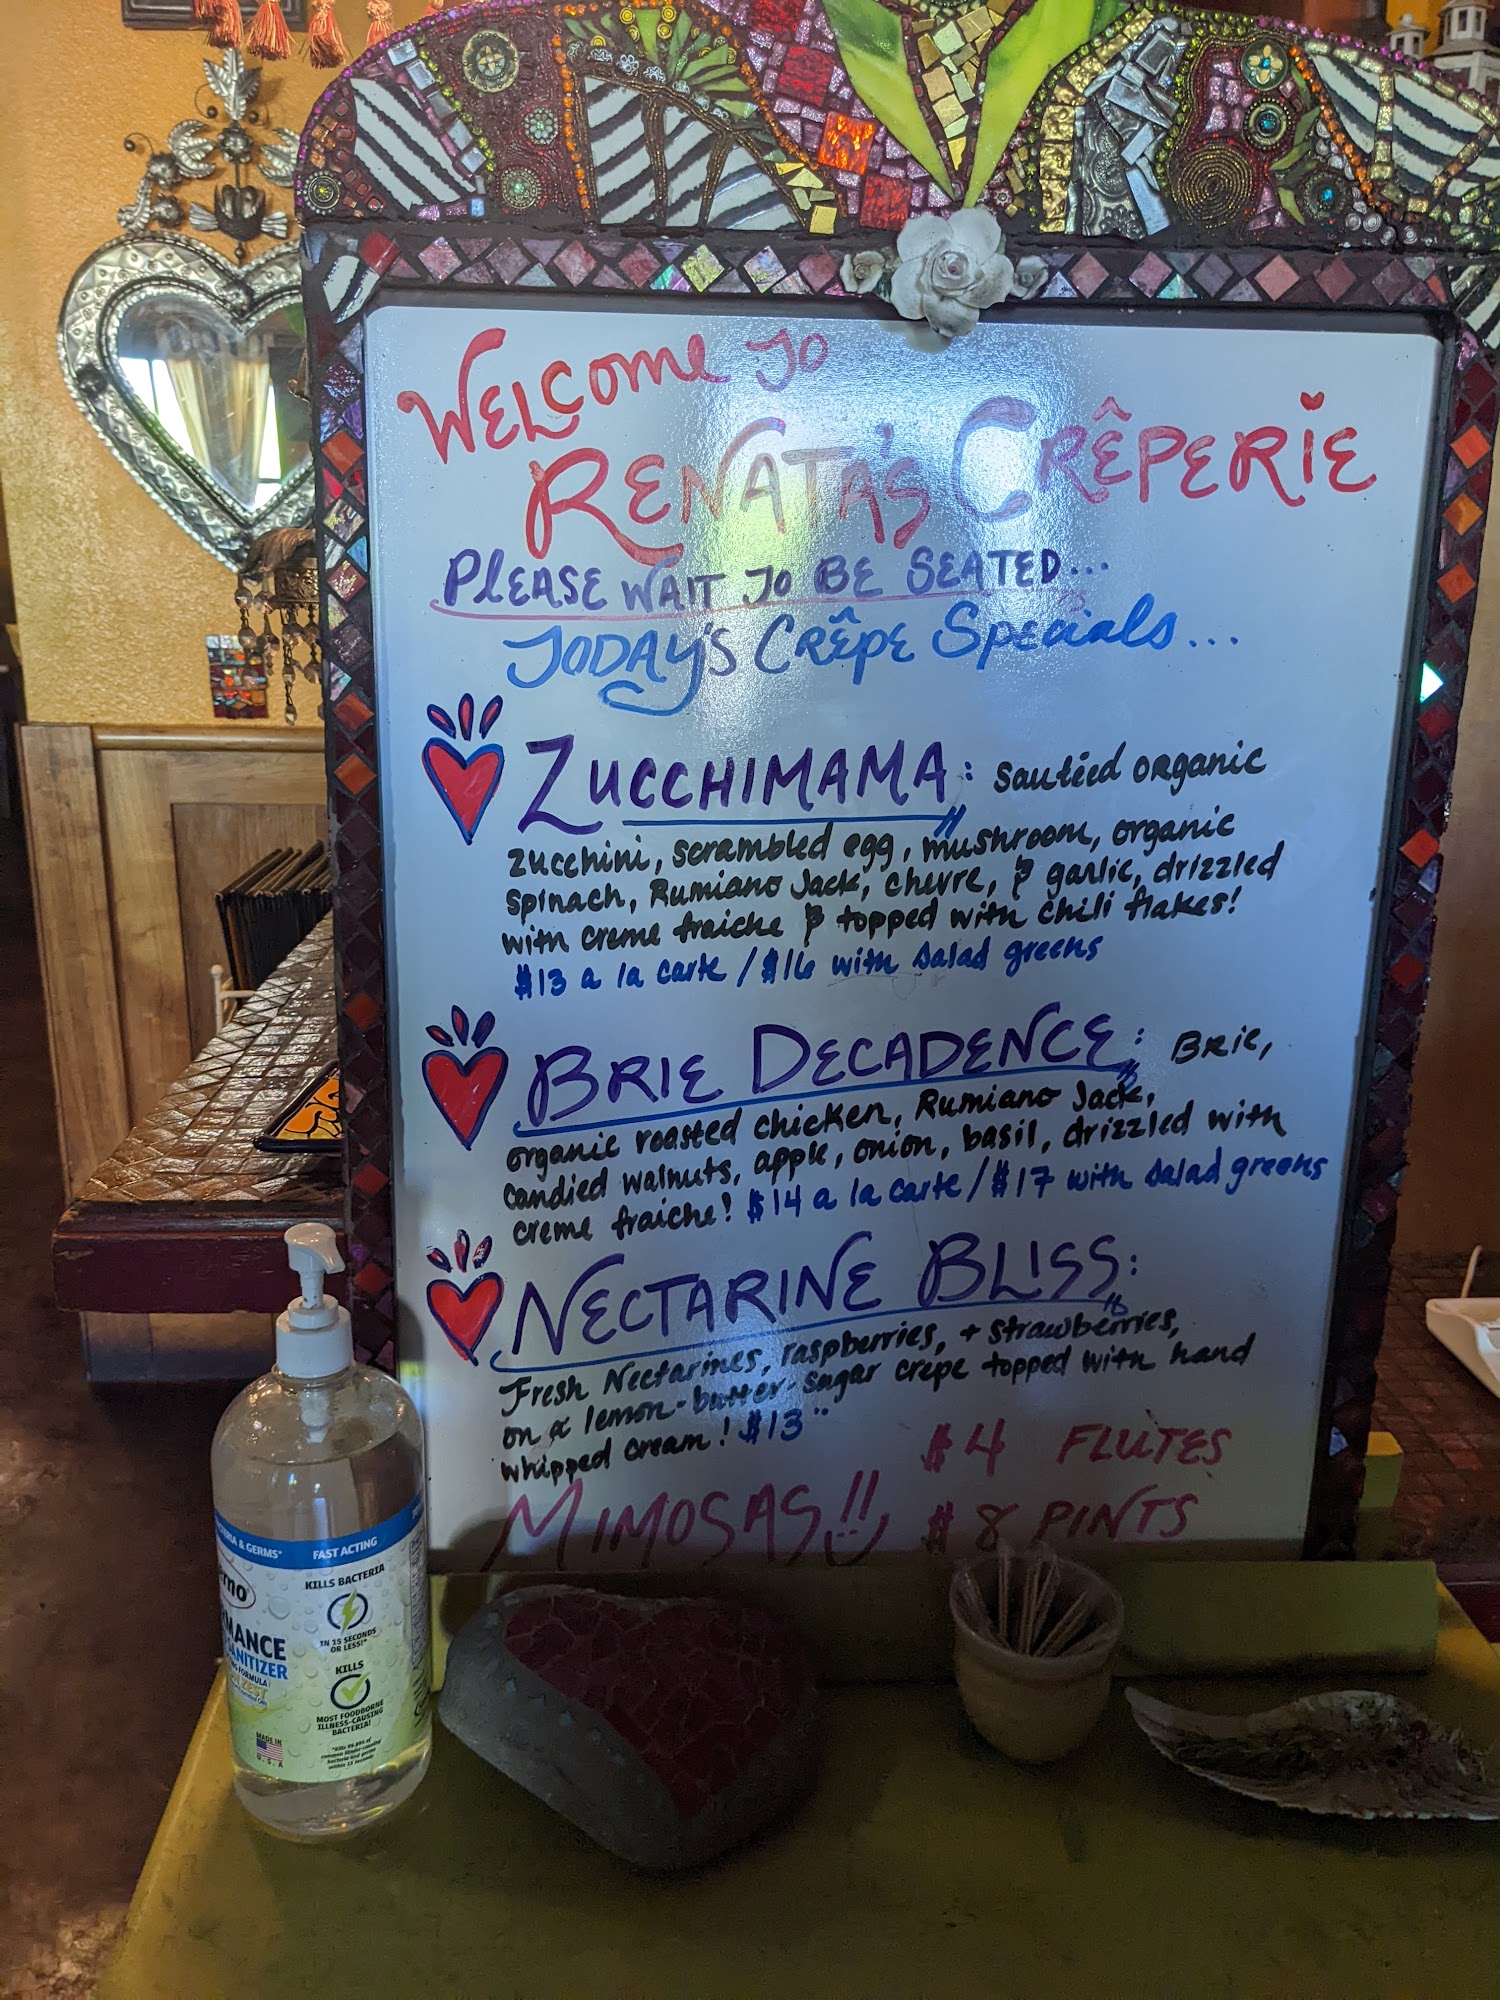 Welcome to
Renata's Crêperie
Please wait to be seated...
Today's Crêpe Specials...
Zucchimama: sautéed organic
zucchini, scrambled egg, mushroom, organic
spinach, Rumiano Jack, chevre, & garlic, drizzled
with creme fraiche & topped with chili flakes!
$13 a la carte / $16 with salad greens
Brie Decadence: Brie,
organic roasted chicken, Rumiano Jack,
candied walnuts, apple, onion, basil, drizzled with
creme fraiche! $14 a la carte / $17 with salad greens
Nectarine Bliss:
Fresh Nectarines, raspberries, + strawberries,
on a lemon-butter-sugar crepe topped with hand
whipped cream! $13
Mimosas!! $4 Flutes
$8 Pints
& GERMS* FAST ACTING
KILLS BACTERIA
IN 15 SECONDS
OR LESS!*
KILLS
MOST FOODBORNE
ILLNESS-CAUSING
BACTERIA!
MADE IN
U.S.A